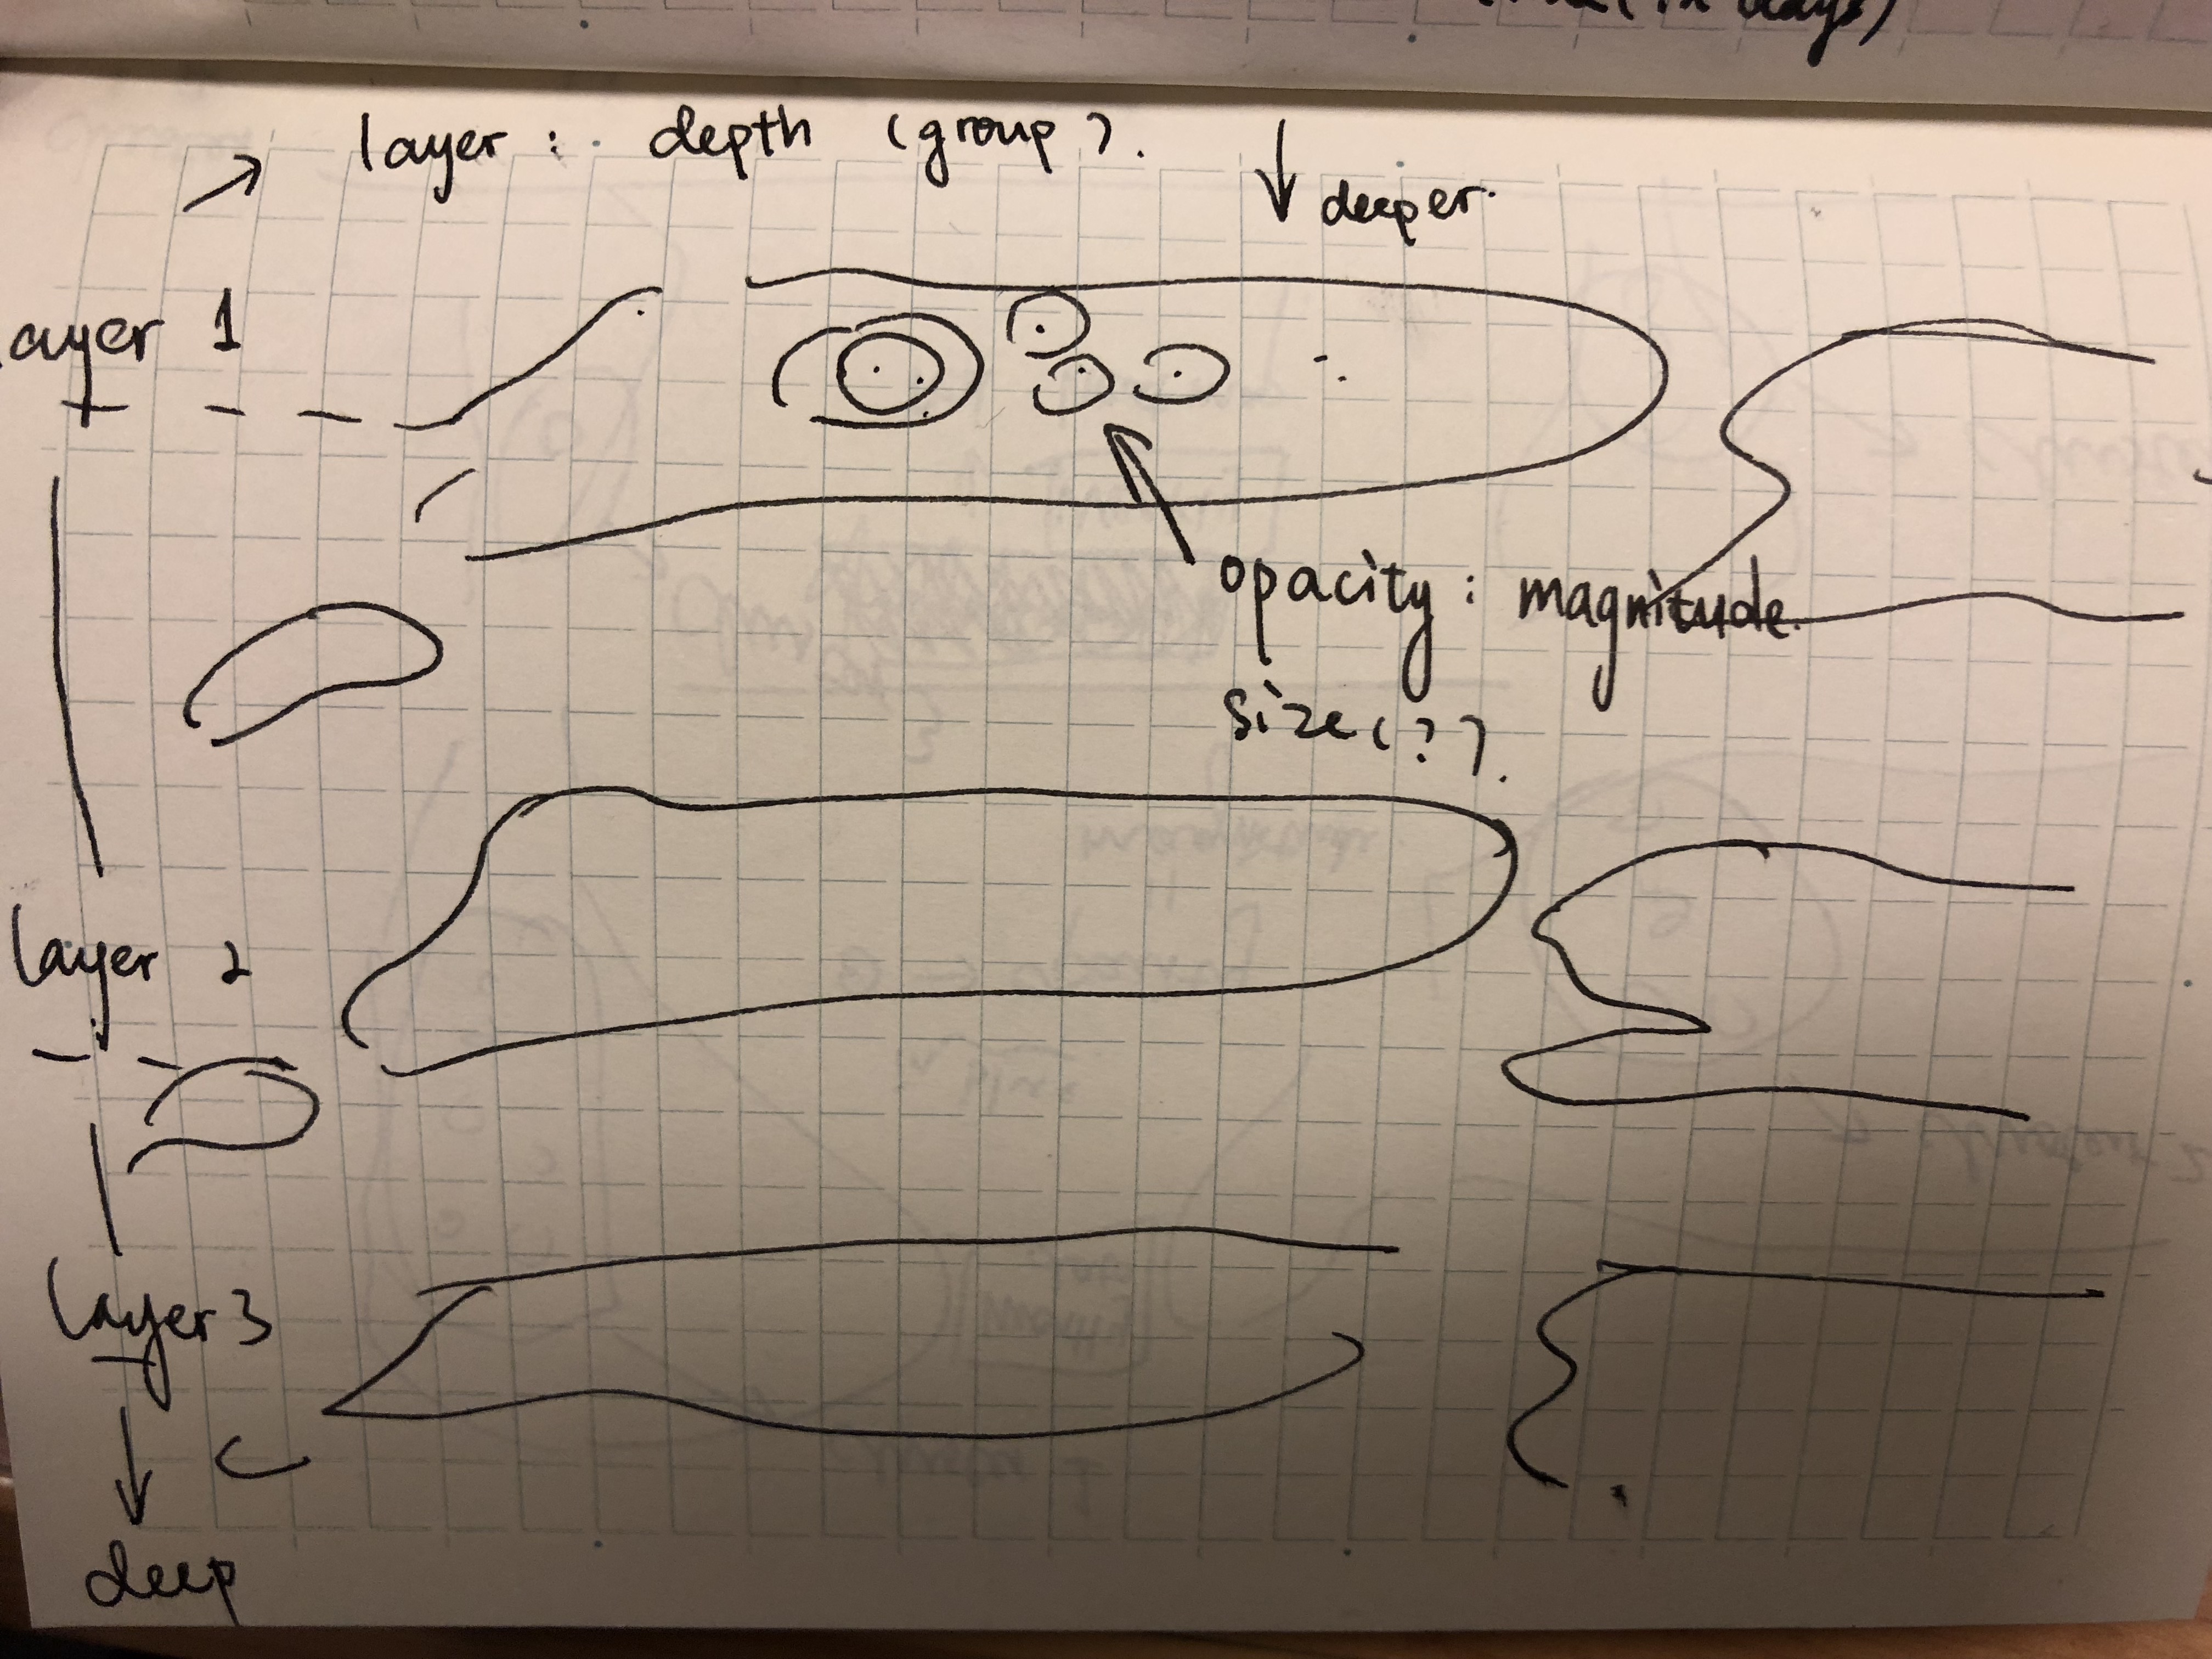 (in days)
layer : depth (group).
deeper.
layer 1
opacity : magnitude.
size (?).
layer 2
layer 3
deep